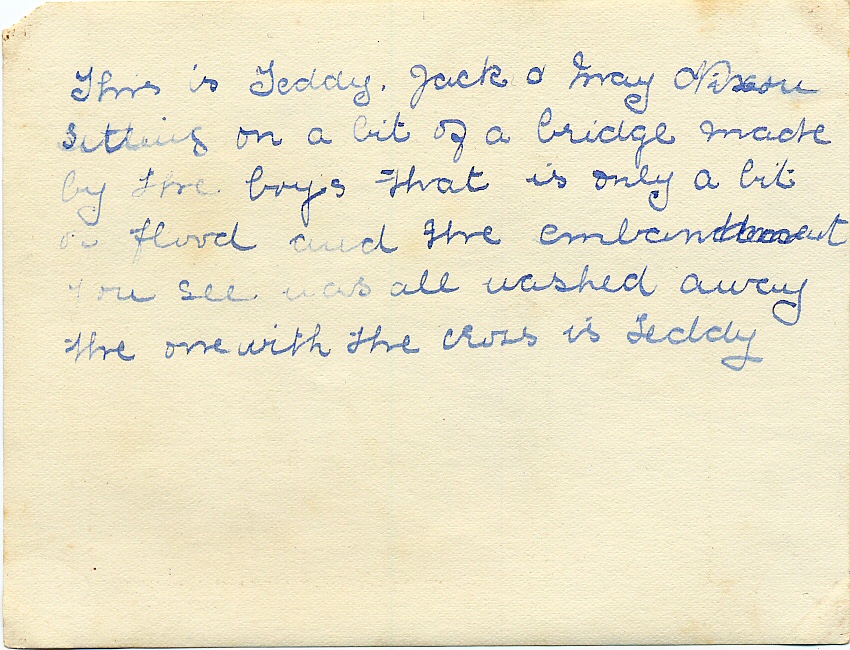 This is Teddy. Jack & May Nixon
sitting on a bit of a bridge made
by the boys that is only a bit
of flood and the
you see was all washed away
the one with the cross is Teddy